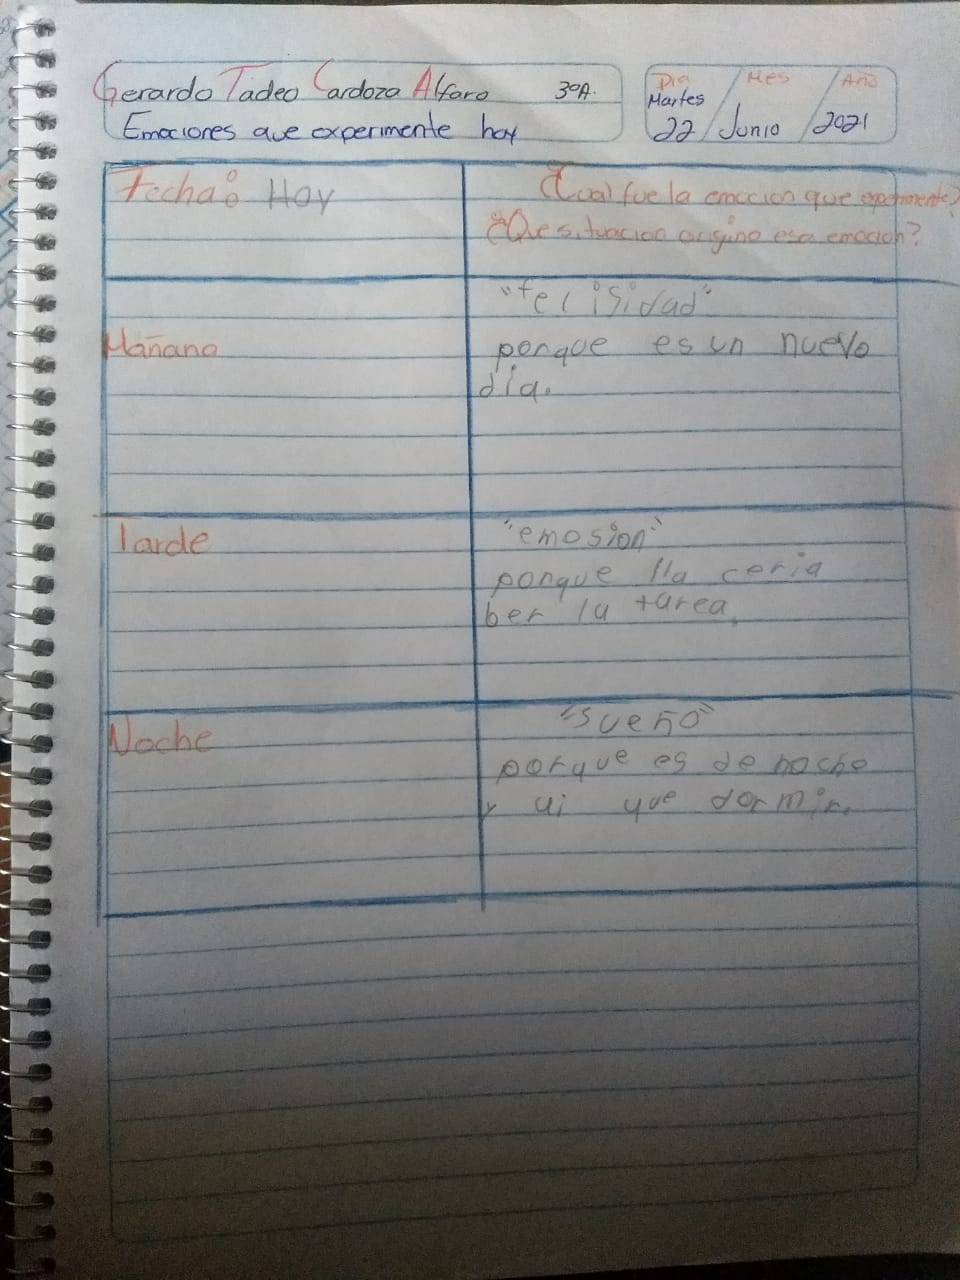 Gerardo Tadeo Cardoza Alfaro 3ºA.
Emociones que experimente hoy
Dia / Mes / Año
Martes
22 / Junio / 2021
Fecha: Hoy
¿Cual fue la emocion que experimente?
¿Que situacion origino esa emocion?
"felisidad"
Mañana
porque es un nuevo
día.
Tarde
"emosion"
porque lla ceria
ber la tarea.
"sueño"
Noche
porque es de noche
y ai que dormir.